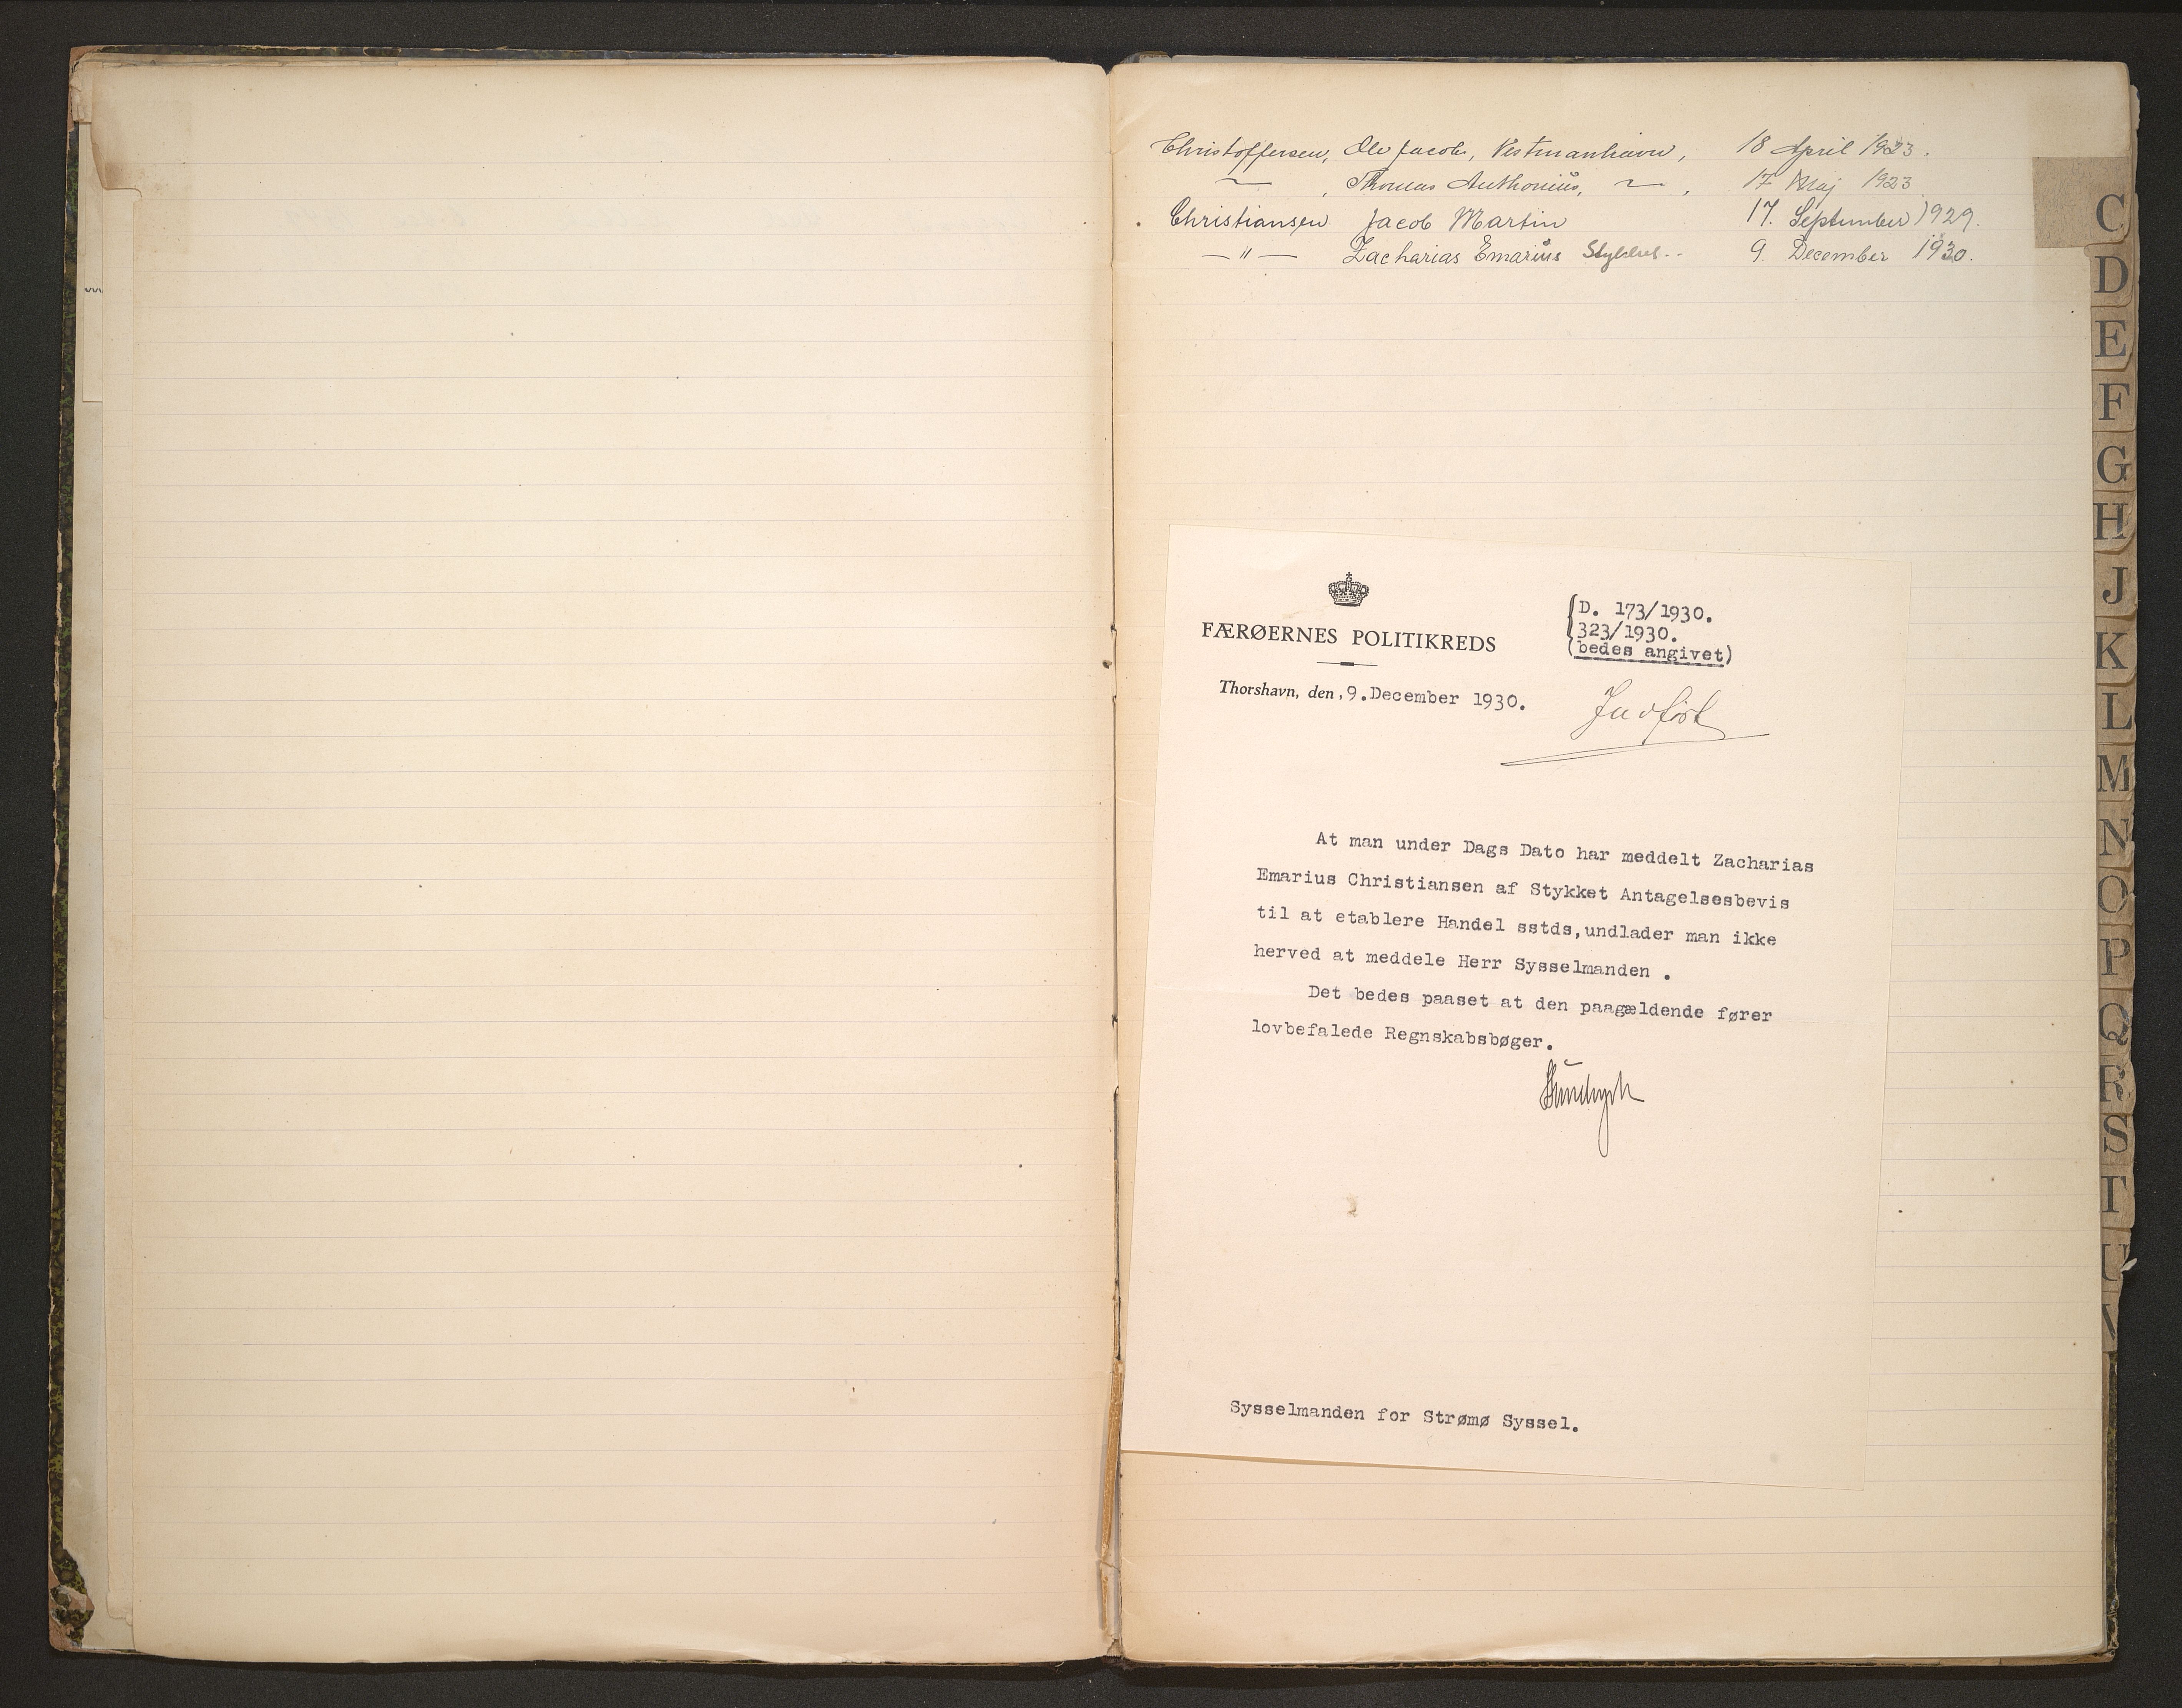 Christoffersen, Ole Jacob, Vestmanhavn, 18 April 1923.
〜 , Thomas Anthonius, 〜 , 17 Maj 1923
Christiansen Jacob Martin 17. September 1929.
— " — Zacharias Emarius Stykket.. 9. December 1930.
C
D
E
F
G
H
J
K
L
M
N
O
P
Q
R
S
T
U
FÆRØERNES POLITIKREDS
D. 173/1930.
323/1930.
(bedes angivet)
Thorshavn, den, 9.December 1930.
Indført
At man under Dags Dato har meddelt Zacharias
Emarius Christiansen af Stykket Antagelsesbevis
til at etablere Handel sstds,undlader man ikke
herved at meddele Herr Sysselmanden .
Det bedes paaset at den paagældende fører
lovbefalede Regnskabsbøger.
Sysselmanden for Strømø Syssel.